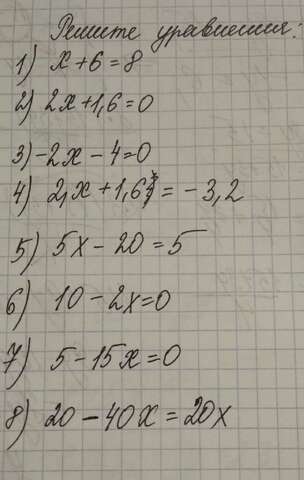 Решите уравнения:
1) x+6=8
2) 2x+1,6=0
3) -2x-4=0
4) 2x+1,6=-3,2
5) 5x-20=5
6) 10-2x=0
7) 5-15x=0
8) 20-40x=20x